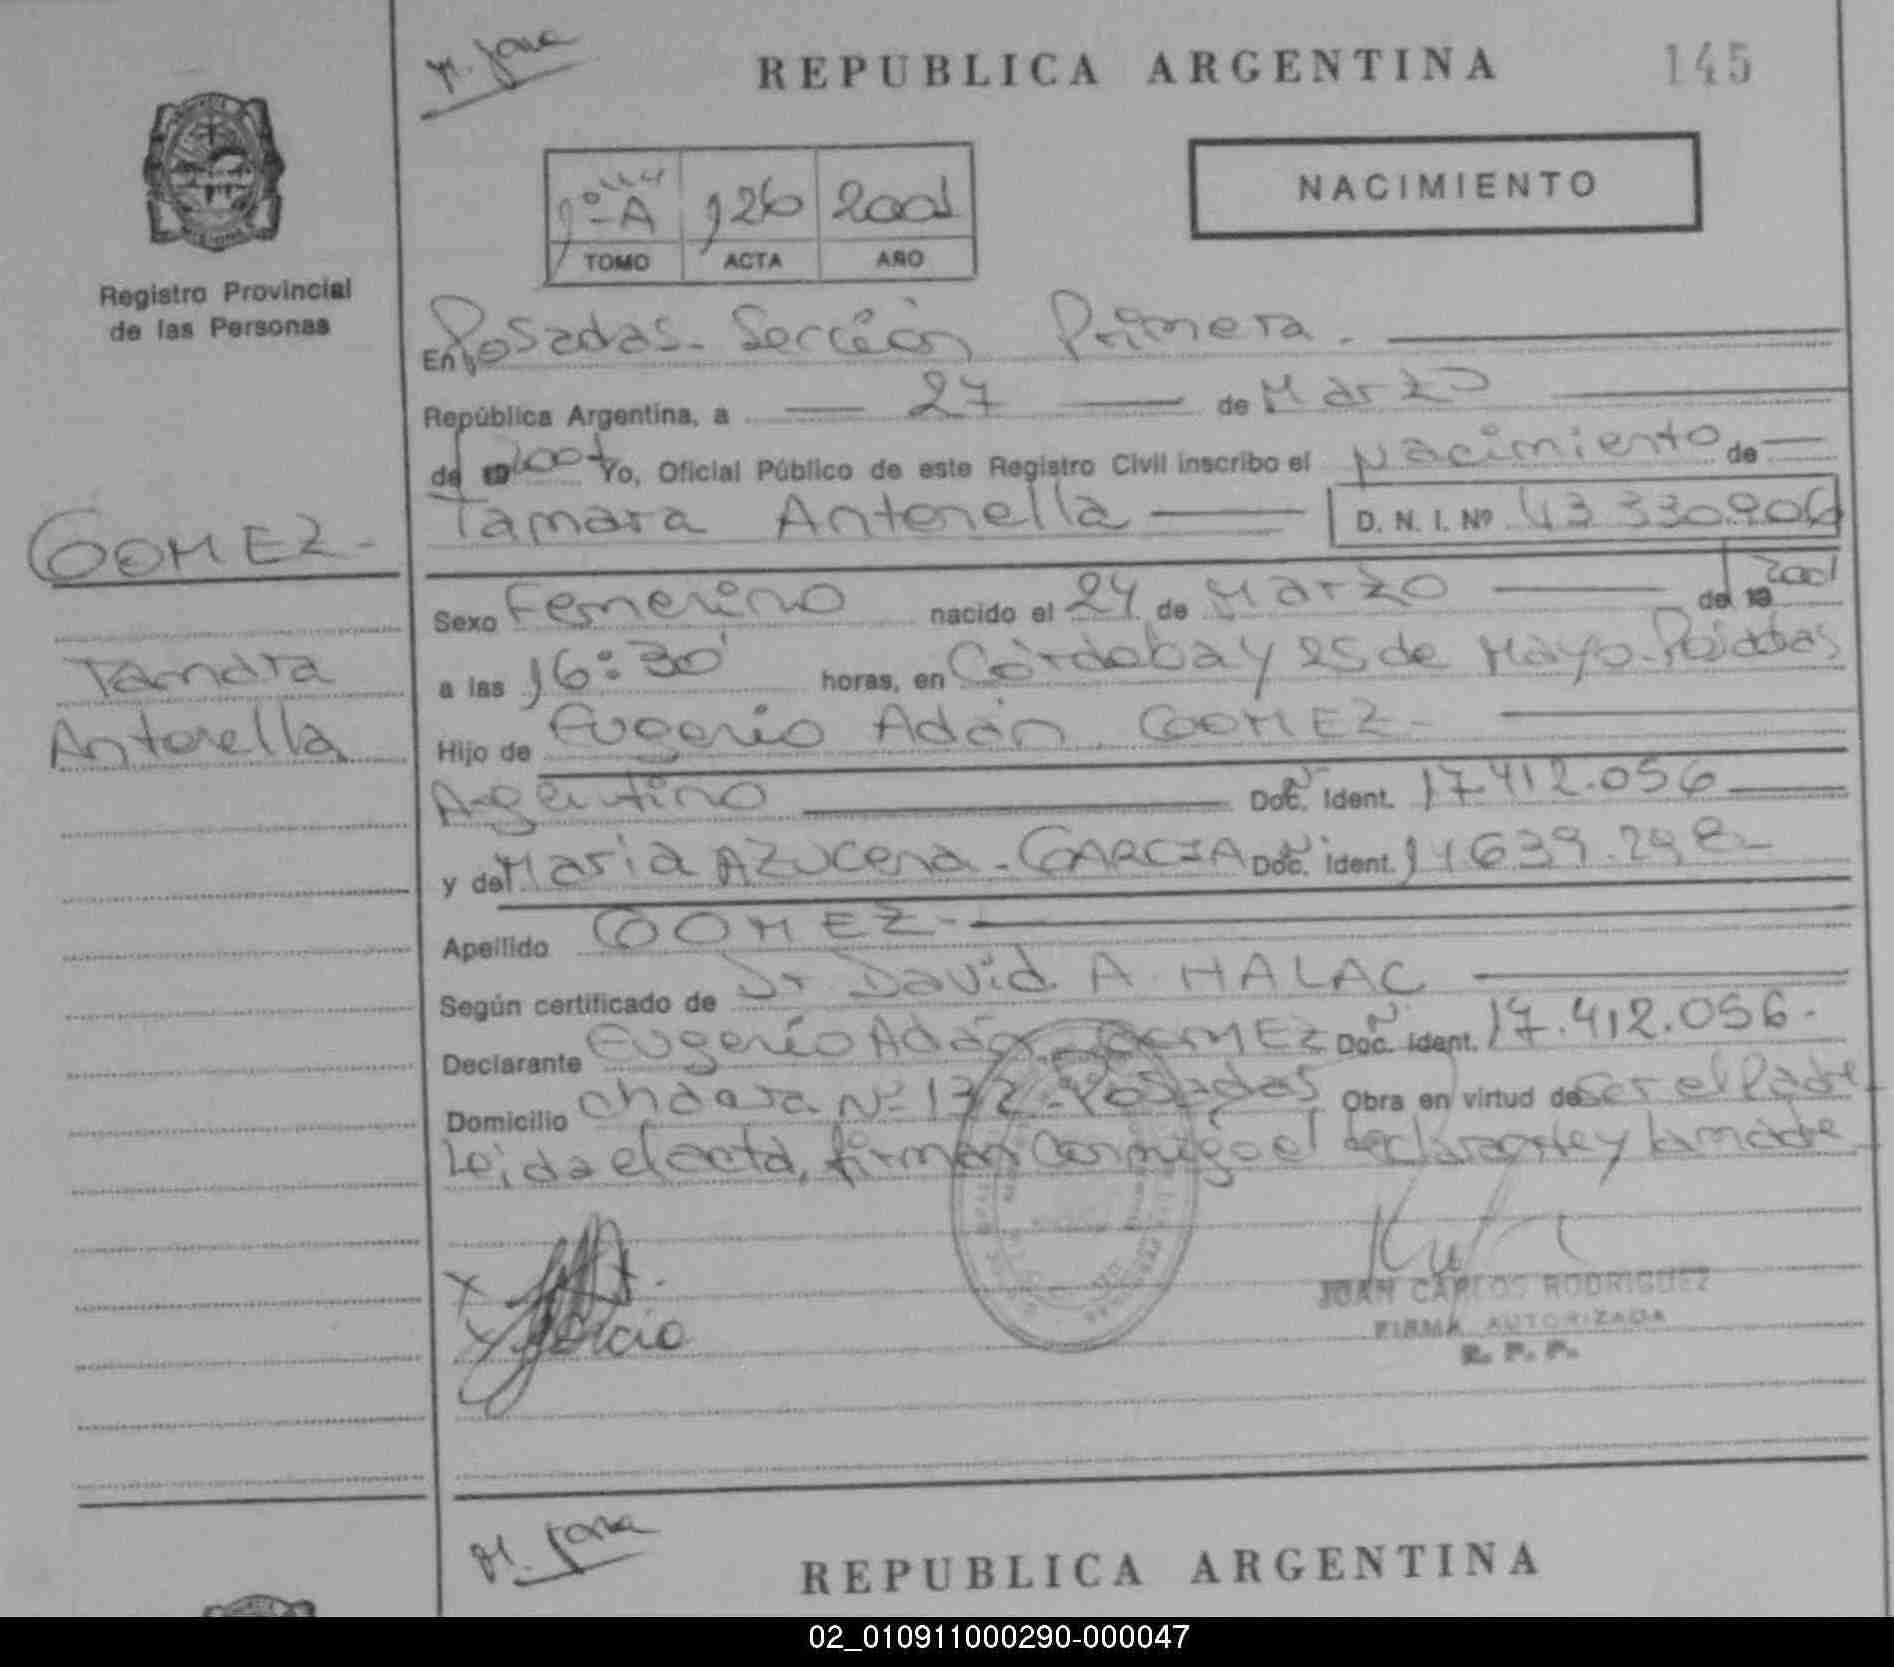 M. Jana
REPUBLICA ARGENTINA
145
NACIMIENTO
1º-A 126 2001
TOMO ACTA AÑO
Registro Provincial
de las Personas
En Posadas - Sección Primera.
República Argentina, a 27 de Marzo
del 2001 Yo, Oficial Público de este Registro Civil inscribo el Nacimiento de
Tamara Antonella D. N. I. Nº 43.330.906
GOMEZ -
Tamara
Antonella
Sexo Femenino nacido el 24 de Marzo del 2001
a las 16:30 horas, en Córdoba y 25 de Mayo - Posadas
Hijo de Eugenio Adán GOMEZ -
Argentino Doc. Ident. 17.412.056
y de Maria Azucena - GARCIA Doc. Ident. 639.29
Apellido GOMEZ -
Según certificado de Dr David A. HALAC
Declarante Eugenio Adán GOMEZ Doc. Ident. 17.412.056.
Domicilio chacra Nº 172 - Posadas Obra en virtud de ser el Padre
Leida el acta, firman conmigo el declarante y la madre
X
X Garcia
JUAN CARLOS RODRIGUEZ
FIRMA AUTORIZADA
R. P. P.
M. Jana
REPUBLICA ARGENTINA
02_010911000290-000047